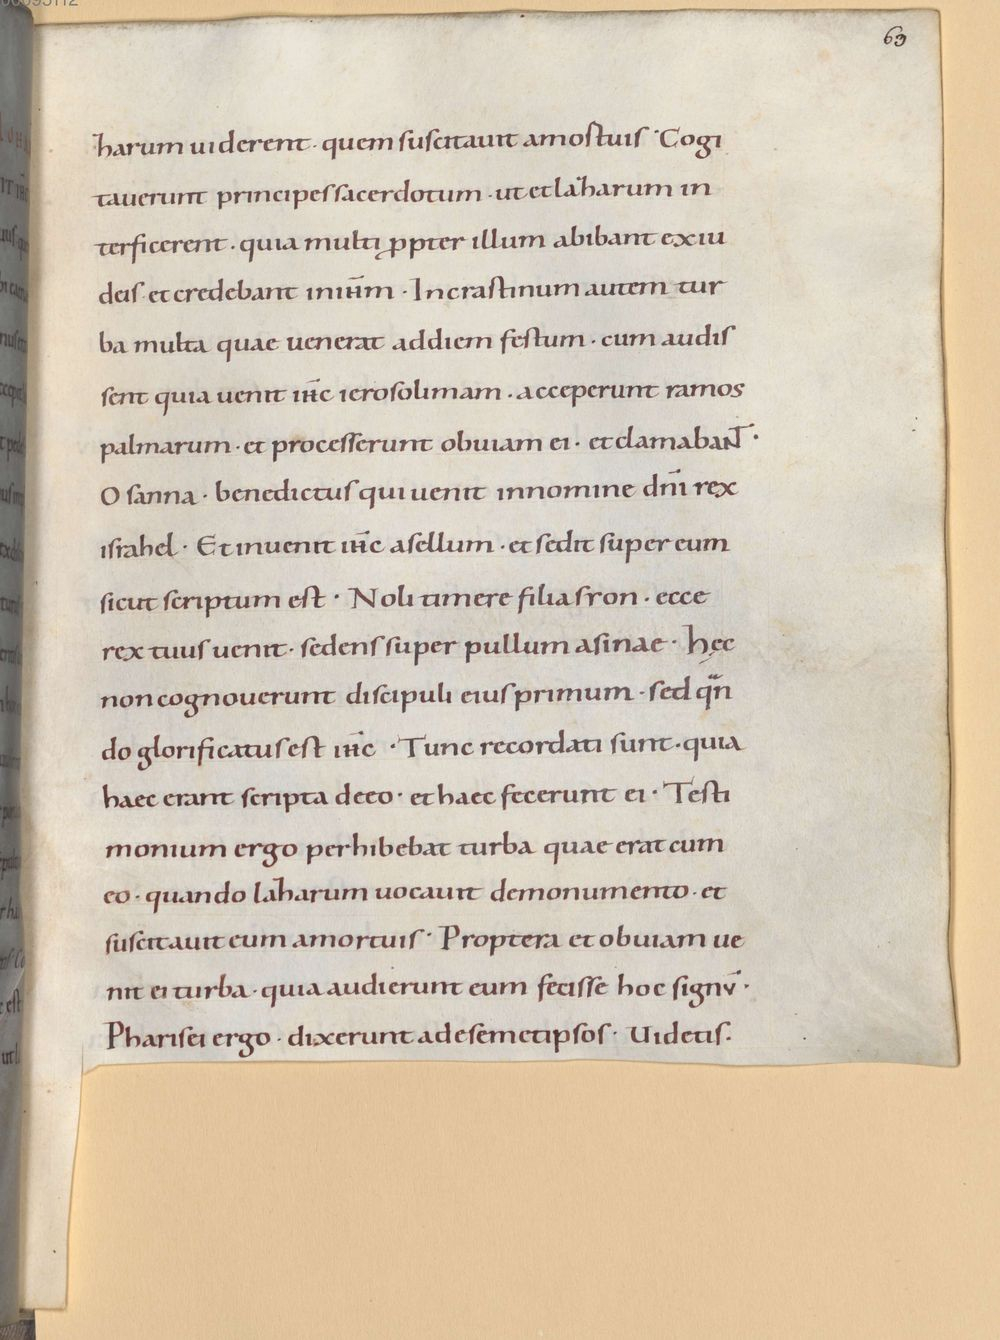 63
harum uiderent · quem suscitauit amostuis · Cogi
tauerunt principes sacerdotum · ut et laharum in
terficerent · quia multi ppter illum abibant ex iu
deis · et credebant in ihm · In crastinum autem tur
ba multa quae uenerat ad diem festum · cum audis
sent quia uenit ihc ierosolimam · acceperunt ramos
palmarum · et processerunt obuiam ei · et clamabaNT ·
O sanna · benedictus qui uenit in nomine dni rex
israhel · Et inuenit ihc asellum · et sedit super eum
sicut scriptum est · Noli timere filia syon · ecce
rex tuus uenit · sedens super pullum asinae · hęc
non cognouerunt discipuli eius primum · sed qn
do glorificatus est ihc · Tunc recordati sunt · quia
haec erant scripta de eo · et haec fecerunt ei · Testi
monium ergo perhibebat turba quae erat cum
eo · quando laharum uocauit de monumento · et
suscitauit eum a mortuis · Propterea et obuiam ue
nit ei turba · quia audierunt eum fecisse hoc signū ·
Pharisei ergo · dixerunt ad semetipsos · Uidetis.